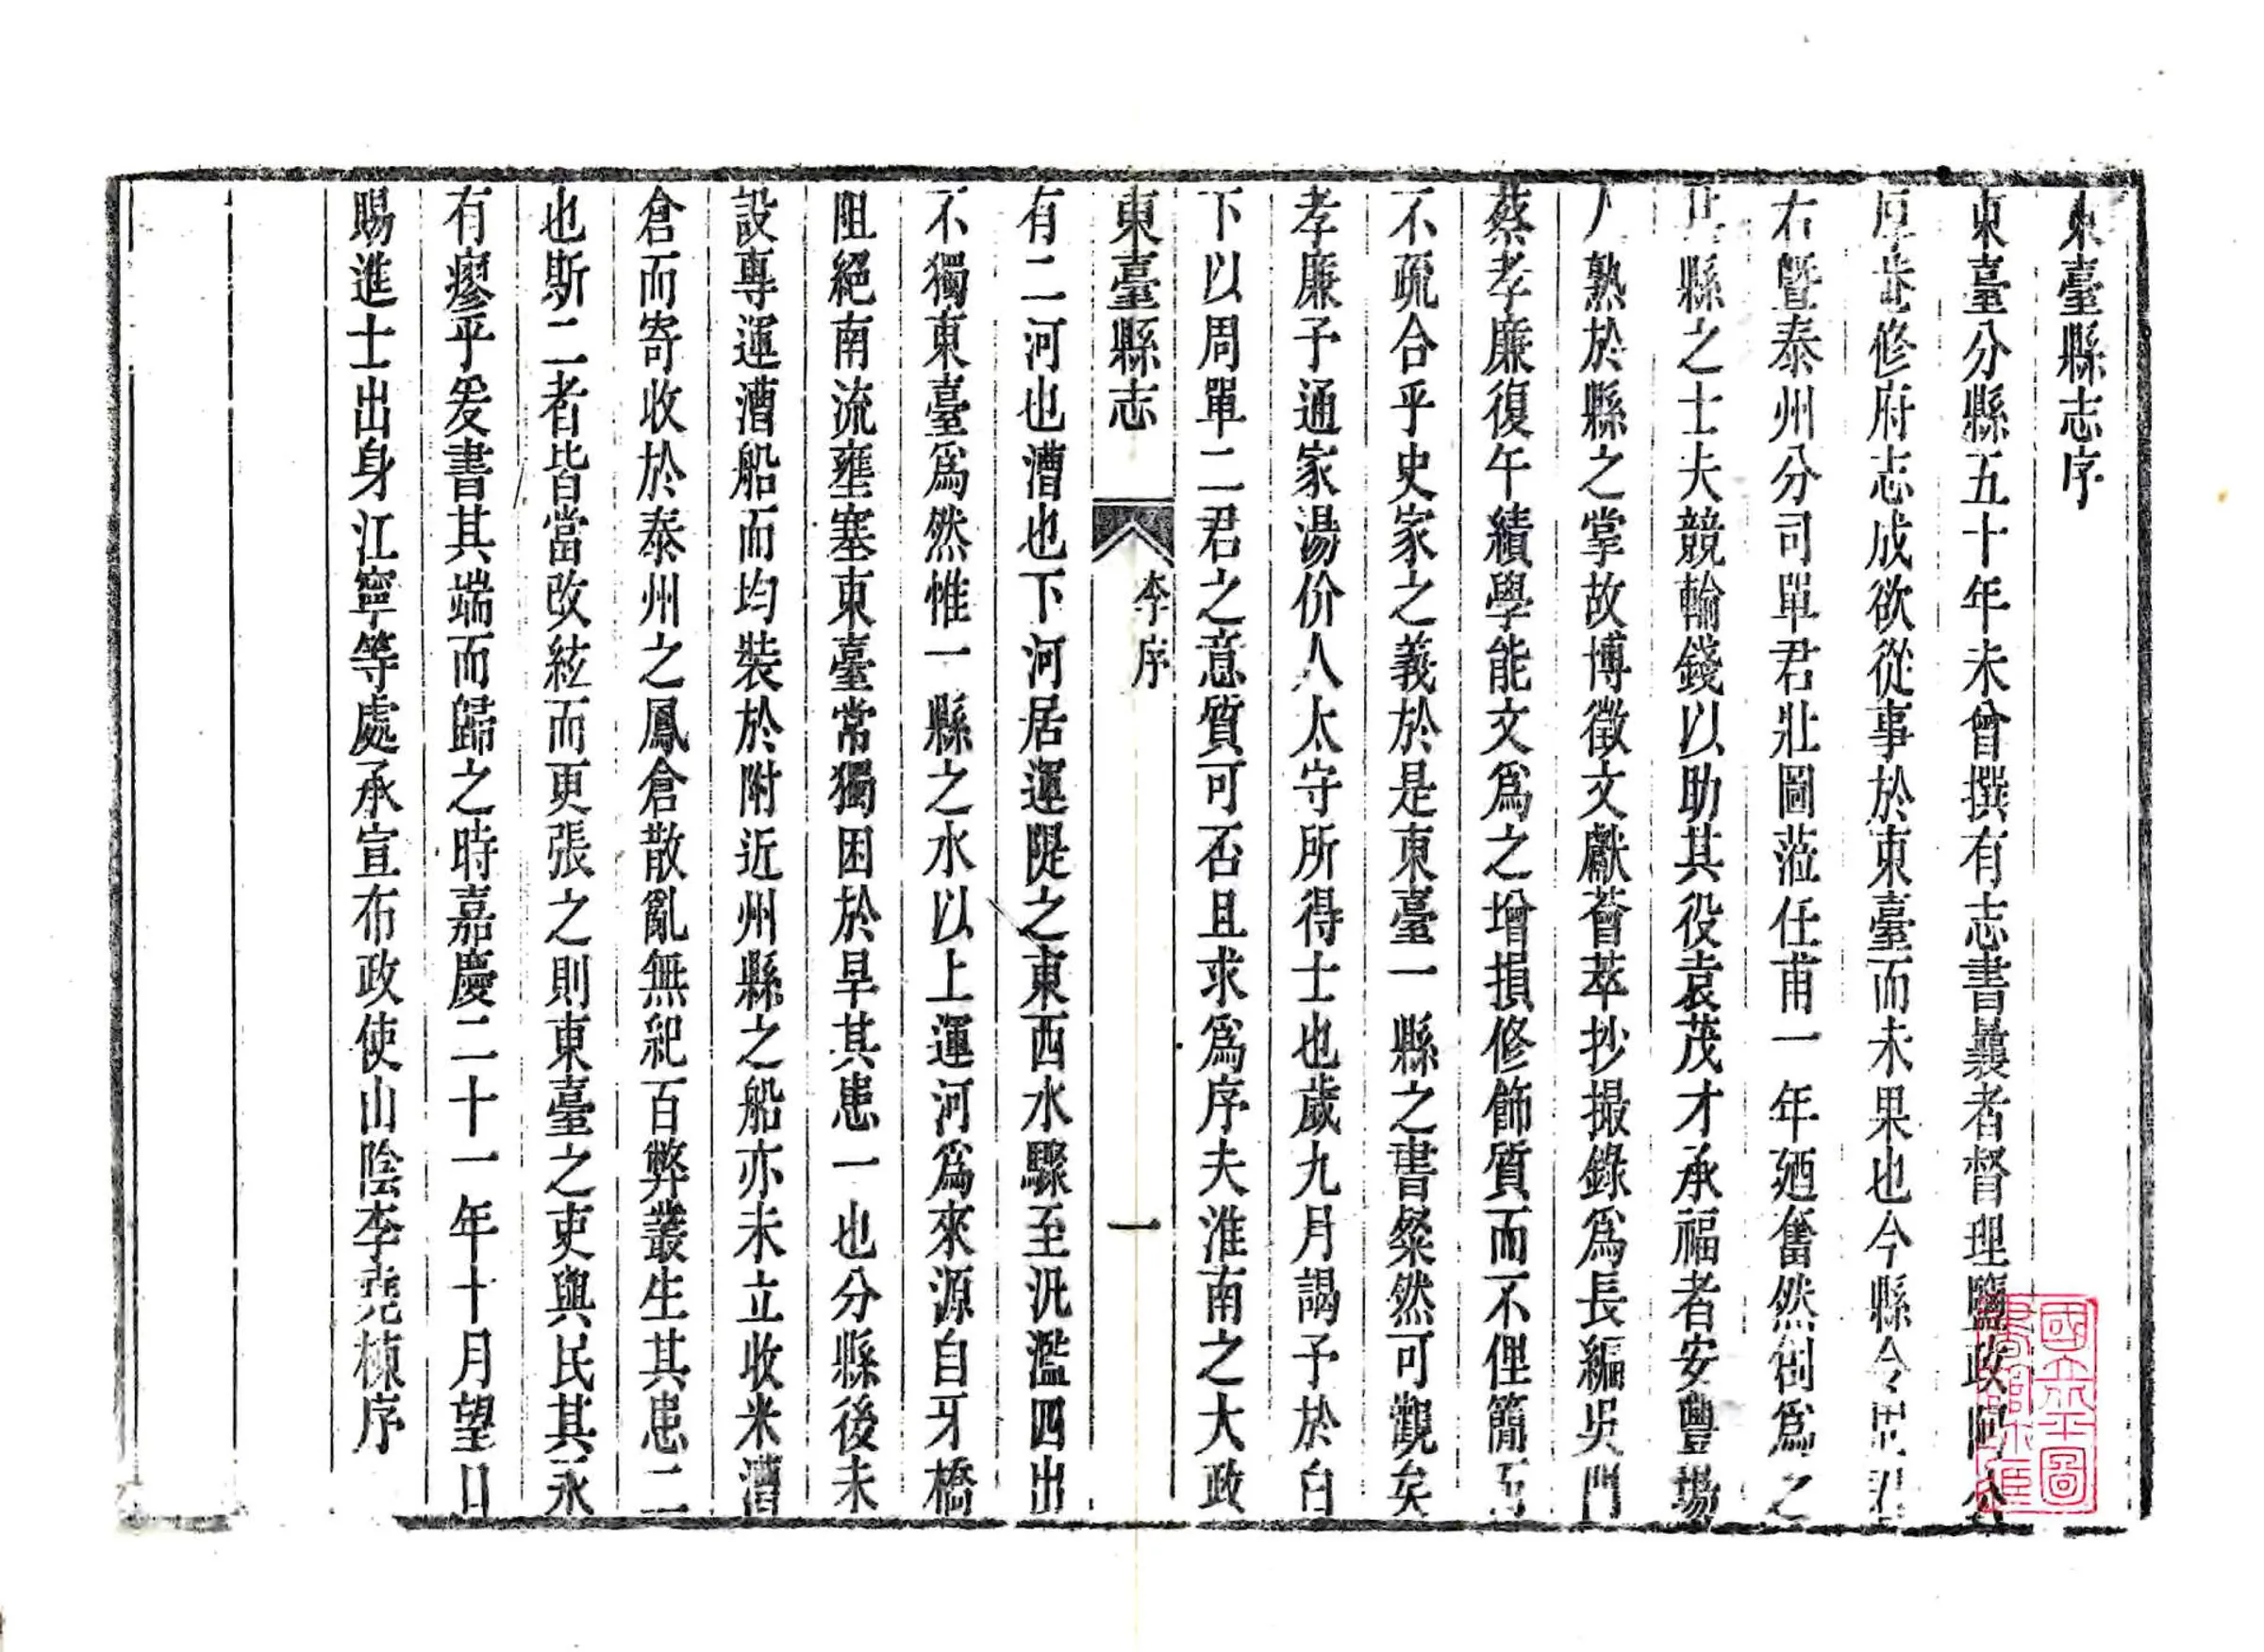 東臺縣志序
東臺分縣五十年未曾撰有志書曩者督理鹽政阿公
修府志成欲從事於東臺而未果也今縣令周君
右曁泰州分司單君壯圖蒞任甫一年廼奮然創爲之
縣之士夫競輸錢以助其役袁茂才承福者安豐場
人熟於縣之掌故博徵文獻薈萃抄撮錄爲長編吳門
蔡孝廉復午績學能文爲之增損修飾質而不俚簡而
不疏合乎史家之義於是東臺一縣之書粲然可觀矣
孝廉予通家湯价人太守所得士也歲九月謁予於白
下以周單二君之意質可否且求爲序夫淮南之大政
東臺縣志 李序 一
有二河也漕也下河居運隄之東西水驟至汎濫四出
不獨東臺爲然惟一縣之水以上運河爲來源自牙橋
阻絕南流壅塞東臺常獨困於旱其患一也分縣後未
設專運漕船而均裝於附近州縣之船亦未立收米漕
倉而寄收於泰州之鳳倉散亂無紀百弊叢生其患二
也斯二者皆當改絃而更張之則東臺之吏與民其永
有瘳乎爰書其端而歸之時嘉慶二十一年十月望日
賜進士出身江寧等處承宣布政使山陰李堯棟序
國立北平圖
書館收藏